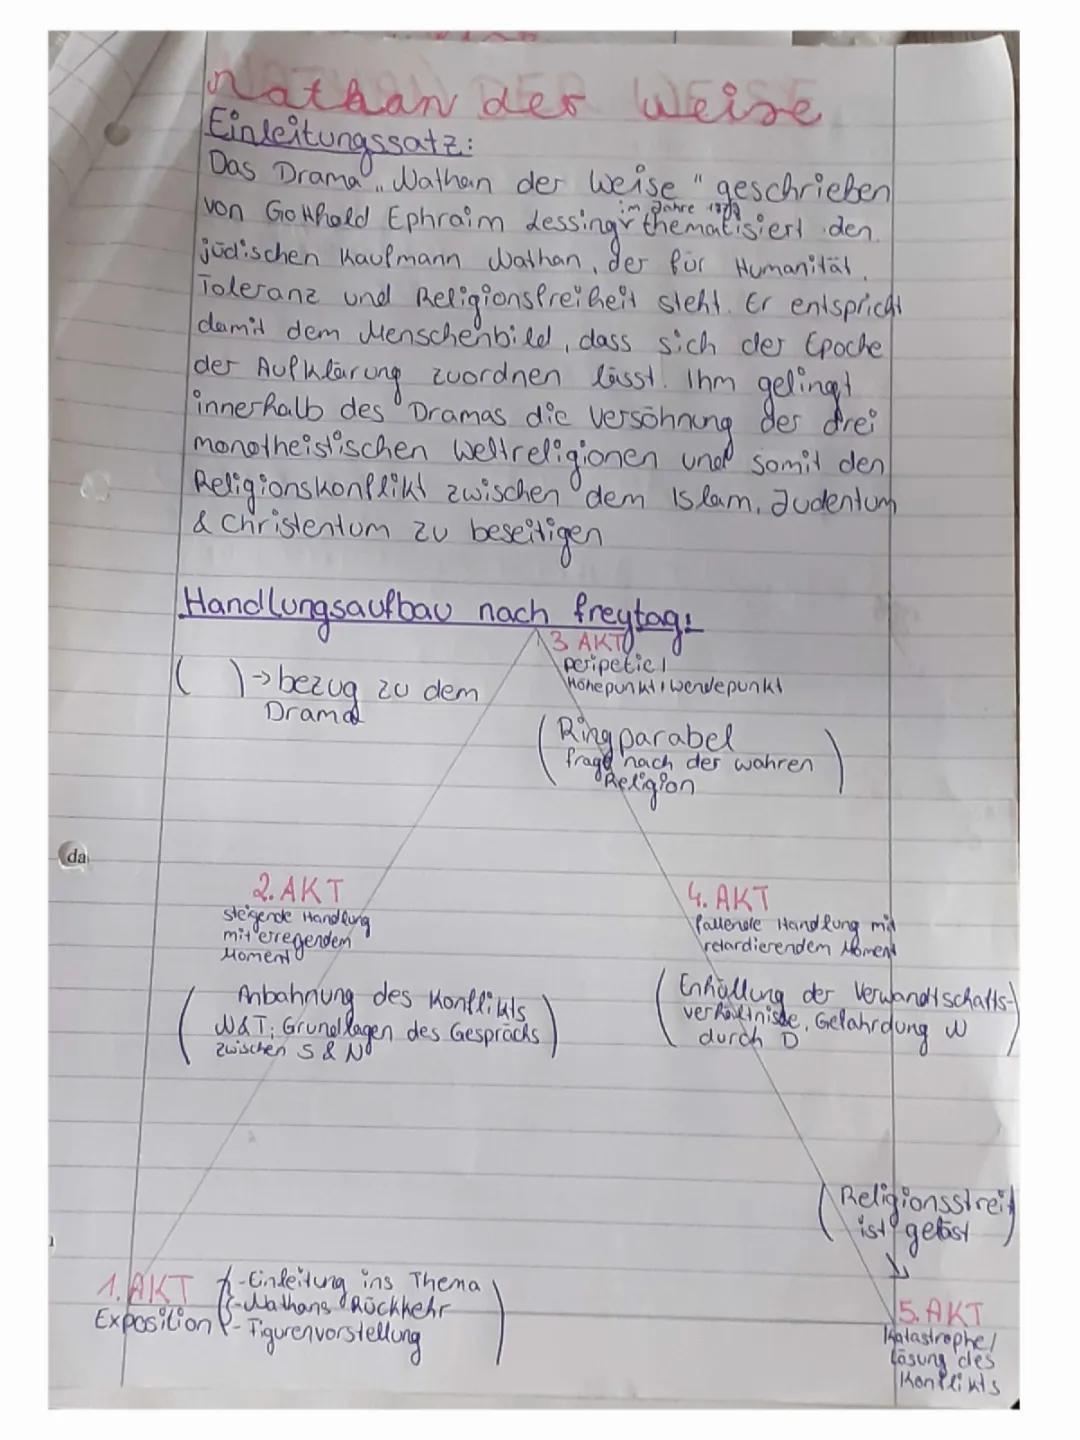 Nathan der Weise
Einleitungssatz:
Das Drama „Nathan der Weise" geschrieben
im Jahre
von Gotthold Ephraim Lessing thematisiert den
jüdischen Kaufmann Nathan, der für Humanität,
Toleranz und Religionsfreiheit steht. Er entspricht
damit dem Menschenbild, dass sich der Epoche
der Aufklärung zuordnen lässt. Ihm gelingt
innerhalb des Dramas die Versöhnung der drei
monotheistischen Weltreligionen und somit den
Religionskonflikt zwischen dem Islam, Judentum
& Christentum zu beseitigen
Handlungsaufbau nach freytag:
( ) → bezug zu dem
Drama
3 AKT
peripetie /
Höhepunkt / wendepunkt
(Ringparabel
frage nach der wahren
Religion)
2. AKT
steigende Handlung
mit erregendem
Moment
(Anbahnung des Konflikts
N&T; Grundlagen des Gesprächs
zwischen S & N)
4. AKT
fallende Handlung mit
retardierendem Moment
(Enhüllung der Verwandtschafts-
verhältnisse, Gefahrdung N
durch D)
(Religionsstreit
ist gelöst)
1. AKT
Exposition
(-Einleitung ins Thema
-Nathans Rückkehr
- Figurenvorstellung)
5. AKT
Katastrophe /
lösung des
Konflikts
da